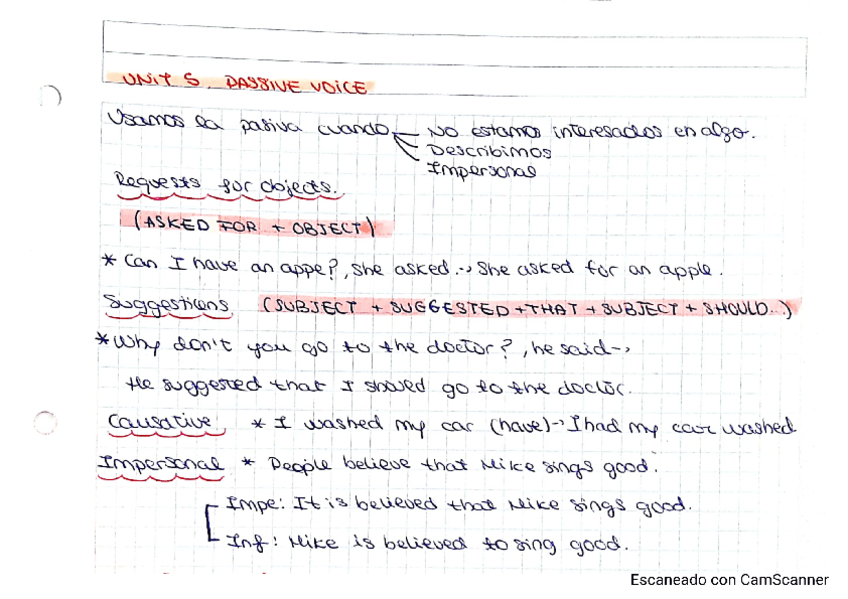 UNIT 5 PASSIVE VOICE
Usamos la pasiva cuando No estamos interesados en algo.
Describimos
Impersonal
Requests for objects.
(ASKED FOR + OBJECT)
* Can I have an appe?, she asked.→ She asked for an apple.
Suggestions (SUBJECT + SUGGESTED + THAT + SUBJECT + SHOULD...)
* Why don't you go to the doctor?, he said→
He suggested that I should go to the doctor.
Causative * I washed my car (have)→ I had my car washed
Impersonal * People believe that Mike sings good.
Impe: It is believed that Mike sings good.
Inf: Mike is believed to sing good.
Escaneado con CamScanner